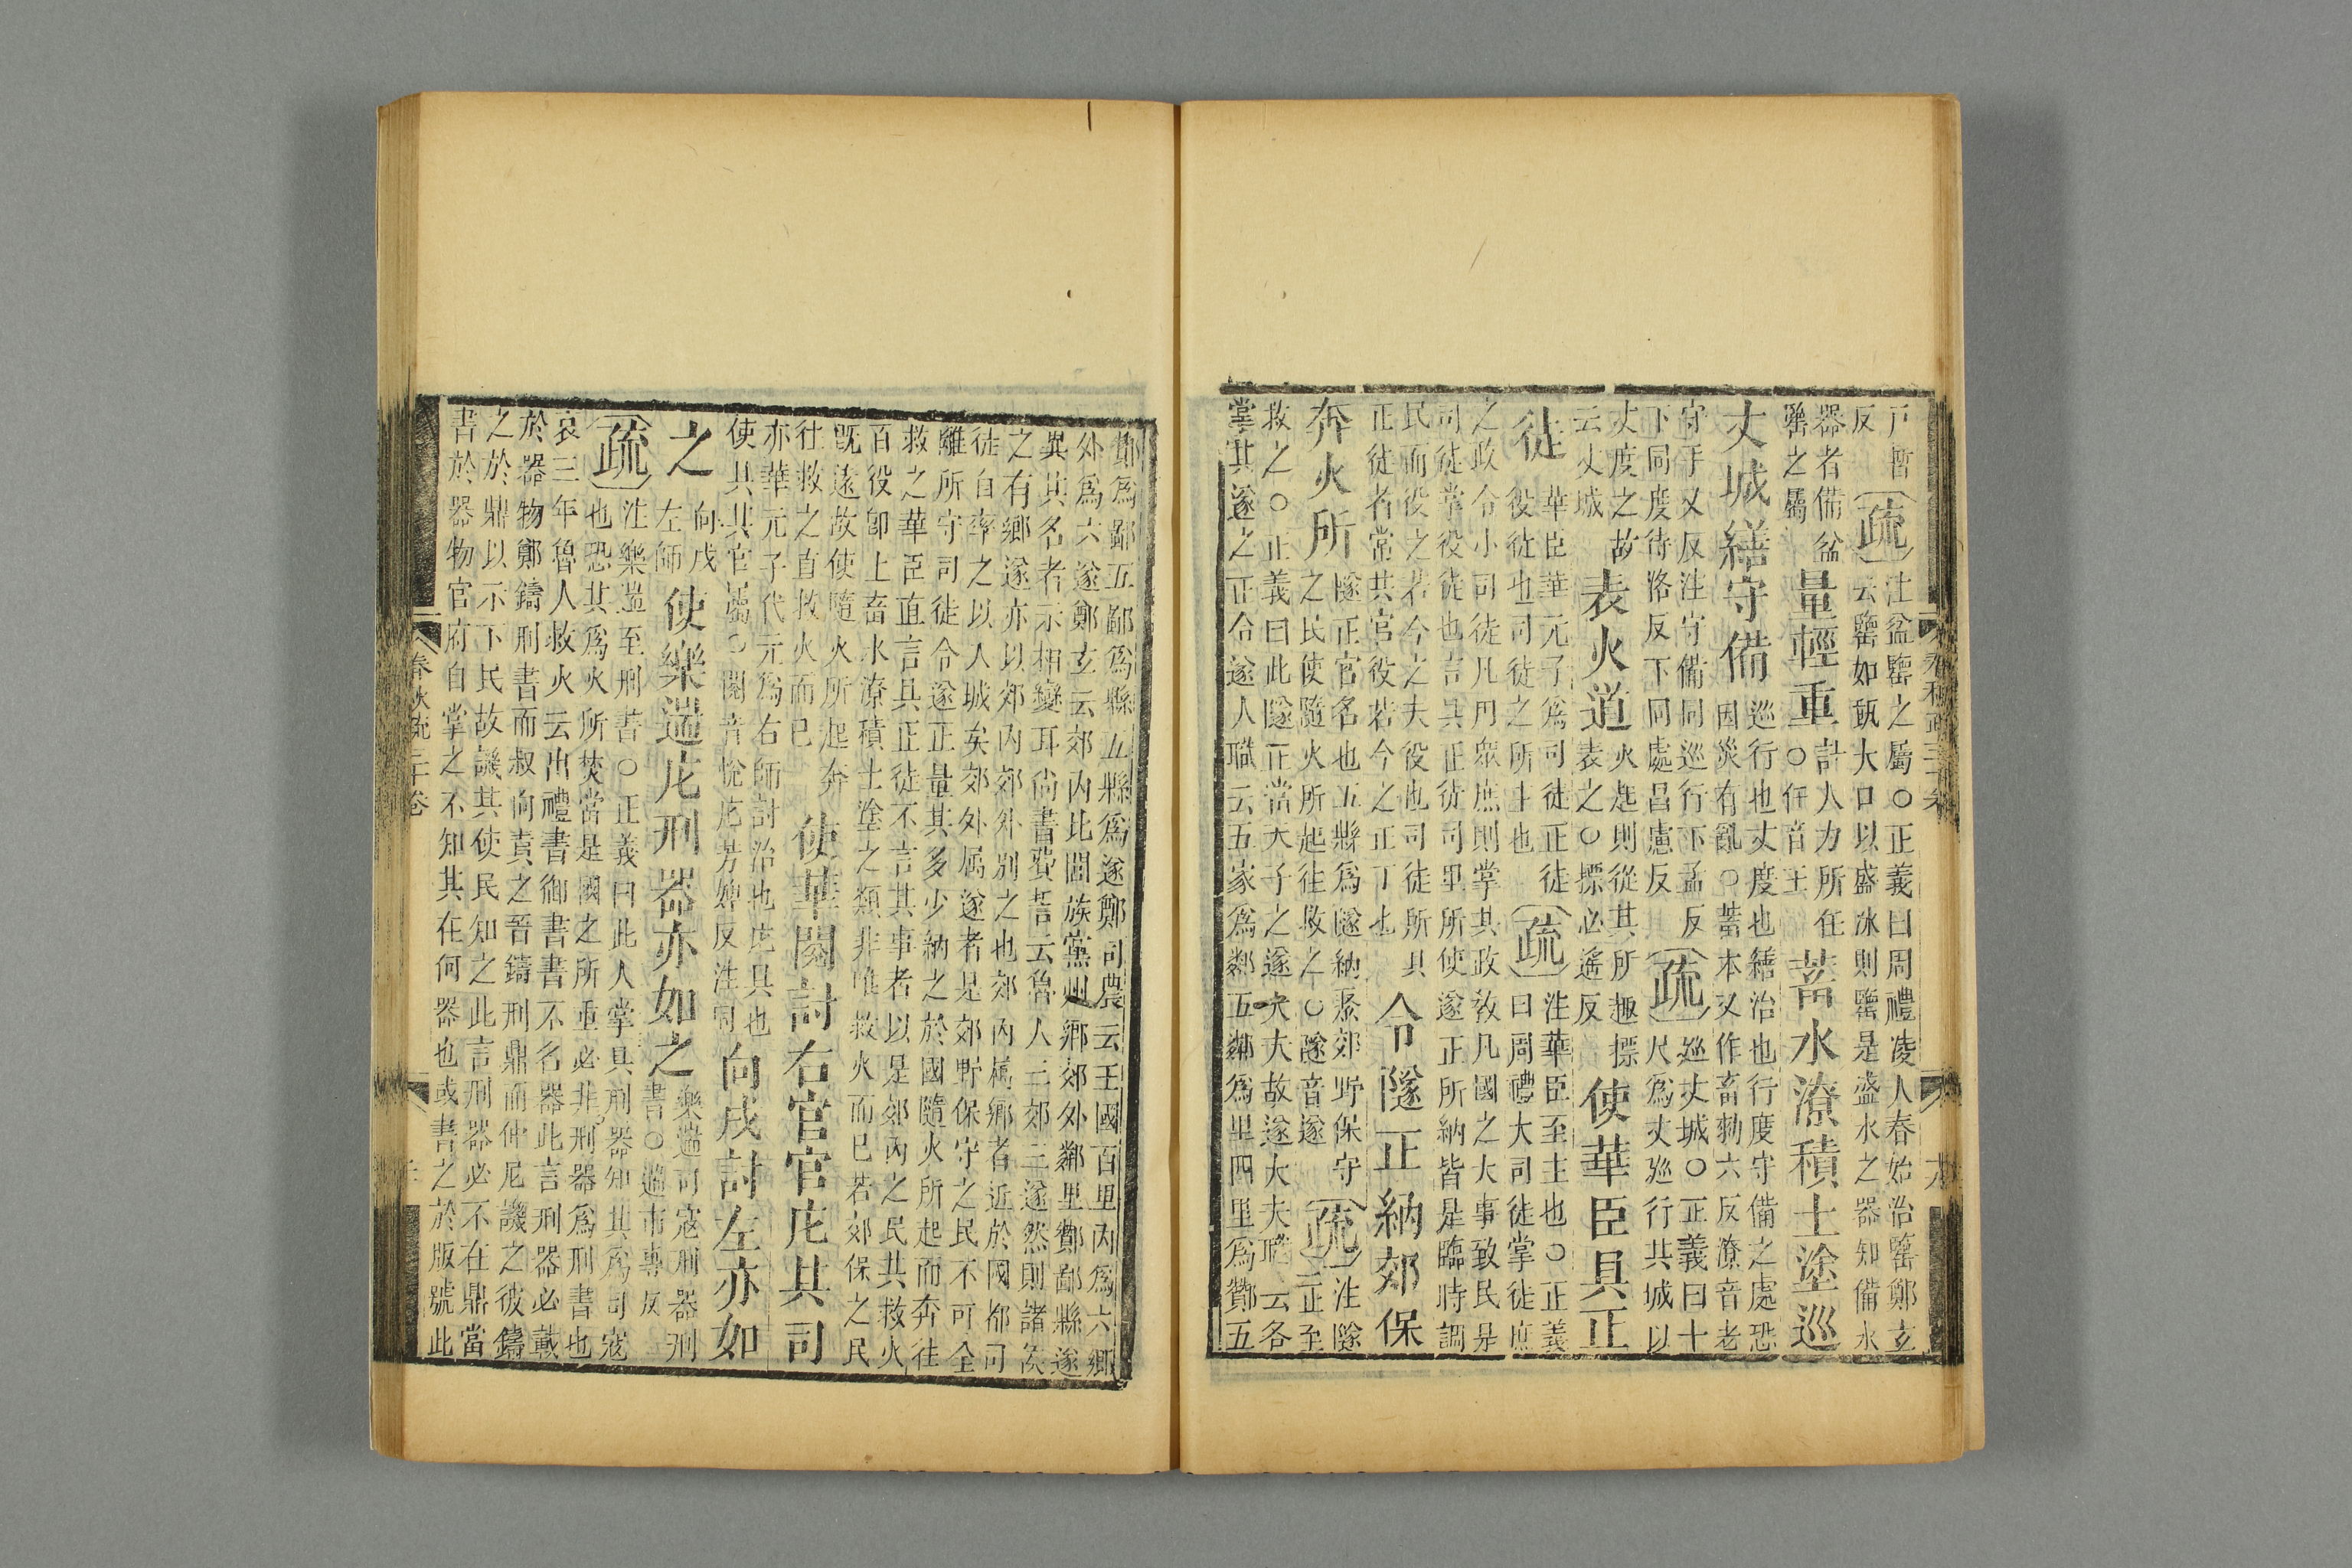 戸暫
反
疏
注盆罌之屬○正義曰周禮凌人春始治罌鄭玄
云罌如甀大口以盛冰則罌是盛水之器知備水
器者備盆
罌之屬
量輕重
計人力所任
○任音壬
蓄水潦積土塗巡
丈城繕守備
巡行也丈度也繕治也行度守備之處恐
因災有亂○蓄本又作畜勑六反潦音老
守手又反注守備同巡行下孟反
下同度待洛反下同處昌慮反
疏
巡丈城○正義曰十
尺爲丈巡行其城以
丈度之故
云丈城
表火道
火起則從其所趣摽
表之○摽必遙反
使華臣具正
徒
華臣華元子爲司徒正徒
役徒也司徒之所主也
疏
注華臣至主也○正義
曰周禮大司徒掌徒庶
之政令小司徒凡用眾庶則掌其政敎凡國之大事致民是
司徒掌役徒也言具正徒司里所使遂正所納皆是臨時調
民而役之若今之夫役也司徒所具
正徒者常共官役若今之正丁也
令隧正納郊保
奔火所
隧正官名也五縣爲隧納聚郊野保守
之民使隨火所起往救之○隧音遂
疏
注隧
正至
救之○正義曰此隧正當天子之遂大夫故遂大夫職云各
掌其遂之正令遂人職云五家爲鄰五鄰爲里四里爲酇五
酇爲鄙五鄙爲縣五縣爲遂鄭司農云王國百里內爲六鄉
外爲六遂鄭玄云郊內比閭族黨州鄉郊外鄰里酇鄙縣遂
異其名者示相變耳尚書費誓云魯人三郊三遂然則諸侯
之有鄉遂亦以郊內郊外別之也郊內屬鄉者近於國都司
徒自率之以入城矣郊外屬遂者是郊野保守之民不可全
離所守司徒令遂正量其多少納之於國隨火所起而奔往
救之華臣直言具正徒不言其事者以是郊內之民共救火
百役卽上畜水潦積土塗之類非唯救火而已若郊保之民
既遠故使隨火所起奔
往救之直救火而已
使華閱討右官官庀其司
亦華元子代元爲右師討治也庀具也
使具其官屬○閱音悅庀芳婢反注同
向戌討左亦如
之
向戌
左師
使樂遄庀刑器亦如之
樂遄司寇刑器刑
書○遄市專反
疏
注樂遄至刑書○正義曰此人掌具刑器知其爲司寇
也恐其爲火所焚當是國之所重必非刑器爲刑書也
哀三年魯人救火云出禮書御書書不名器此言刑器必載
於器物鄭鑄刑書而叔向責之晉鑄刑鼎而仲尼譏之彼鑄
之於鼎以示下民故譏其使民知之此言刑器必不在鼎當
書於器物官府自掌之不知其在何器也或書之於版號此
春秋疏三十卷